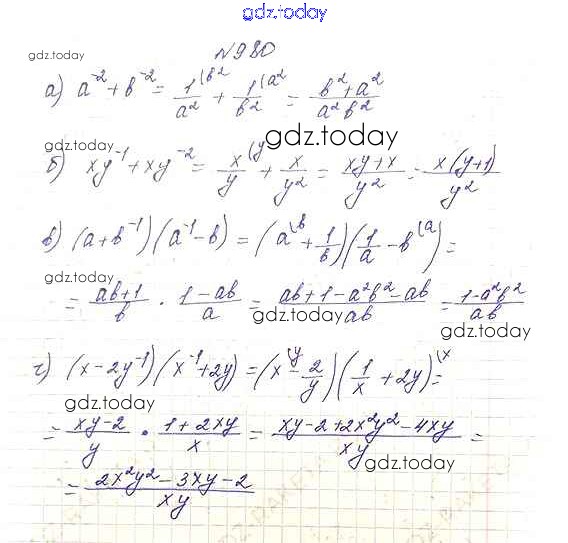 gdz.today
gdz.today
N980
а) a⁻² + b⁻² = 1/a² (b² + 1/b² (a² = (b² + a²)/(a²b²)
gdz.today
б) xy⁻¹ + xy⁻² = x/y (y + x/y² = (xy + x)/y² = x(y+1)/y²
в) (a + b⁻¹)(a⁻¹ - b) = (a (b + 1/b)(1/a - b (a) =
gdz.today
= (ab+1)/b · (1-ab)/a = (ab+1-a²b²-ab)/ab = (1-a²b²)/ab
gdz.today gdz.today
г) (x - 2y⁻¹)(x⁻¹ + 2y) = (x (y - 2/y)(1/x + 2y) (x =
gdz.today
= (xy-2)/y · (1+2xy)/x = (xy-2+2x²y²-4xy)/xy =
gdz.today
= (2x²y²-3xy-2)/xy